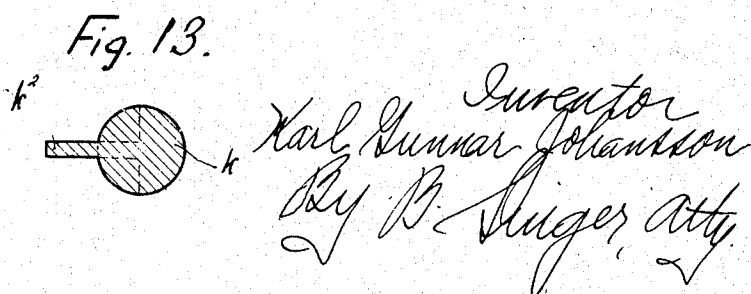 Fig. 13.
k²
k
Inventor
Karl Gunnar Johansson
By B. Singer, atty.